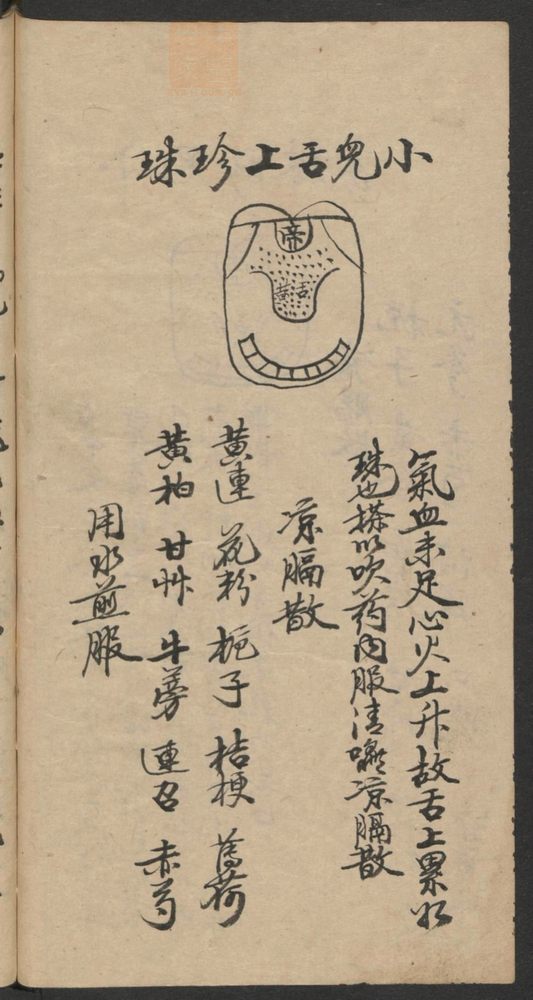 小兒舌上珍珠
帝
黄舌
氣血未足心火上升故舌上累如
珠也搽以吹药内服清嚥凉膈散
凉膈散
黄連 花粉 梔子 桔梗 薄荷
黄柏 甘艸 牛蒡 連召 赤芍
用水煎服